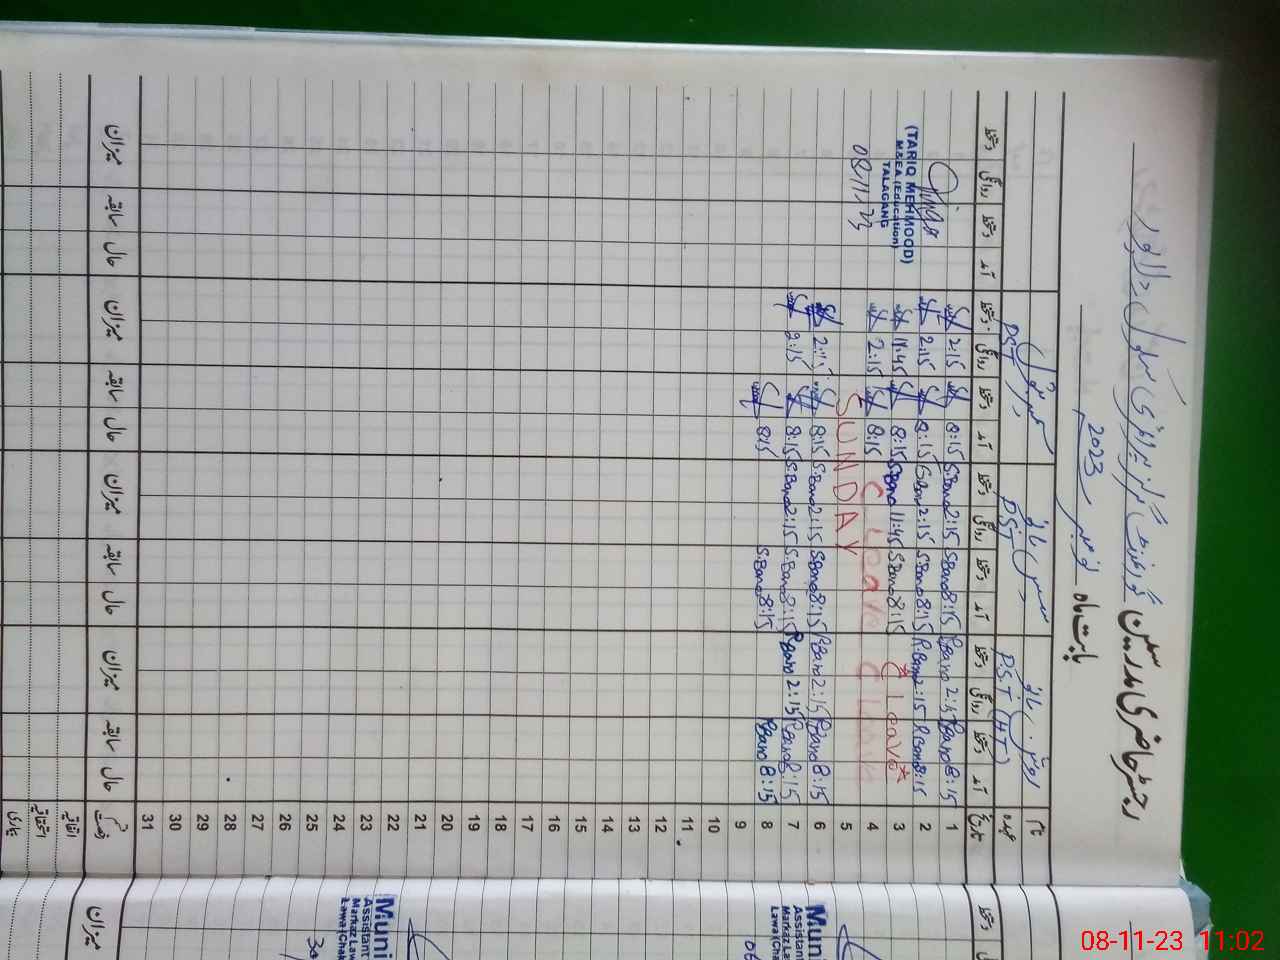 رجسٹر حاضری مدرسین گورنمنٹ گرلز پرائمری سکول دلاور
بابت ماہ نومبر 2023
نام روشن بانو
عہدہ P.S.T (HT) PST PST
تاریخ آمد دستخط روانگی دستخط آمد دستخط روانگی دستخط آمد دستخط روانگی دستخط آمد دستخط روانگی دستخط
1 8:15 R.Bano 2:15 R.Bano 8:15 S.Bano 2:15 S.Bano 8:15 2:15
2 8:15 R.Bano 2:15 R.Bano 8:15 S.Bano 2:15 S.Bano 8:15 2:15
3 * C Leave * 8:15 S.Bano 11:45 S.Bano 8:15 11:45
4 C Leave C Leave 8:15 2:15
5 SUNDAY
6 8:15 R.Bano 2:15 R.Bano 8:15 S.Bano 2:15 S.Bano 8:15 2:15
7 8:15 R.Bano 2:15 R.Bano 8:15 S.Bano 2:15 S.Bano 8:15 2:15
8 8:15 R.Bano 8:15 S.Bano 8:15
9
10
11
12
13
14
15
16
17
18
19
20
21
22
23
24
25
26
27
28
29
30
31
(TARIQ MEHMOOD)
M&EA (Education)
TALAGANG
08/11/23
قسم رخصت حال سابقہ میزان حال سابقہ میزان حال سابقہ میزان حال سابقہ میزان
اتفاقیہ
استحقاقیہ
بیماری
دستخط
میزان
Muni
Assistant
Markaz Law
Lawa (Chak
Muni
Assistant
Markaz Law
Lawa (Chak
08-11-23 11:02